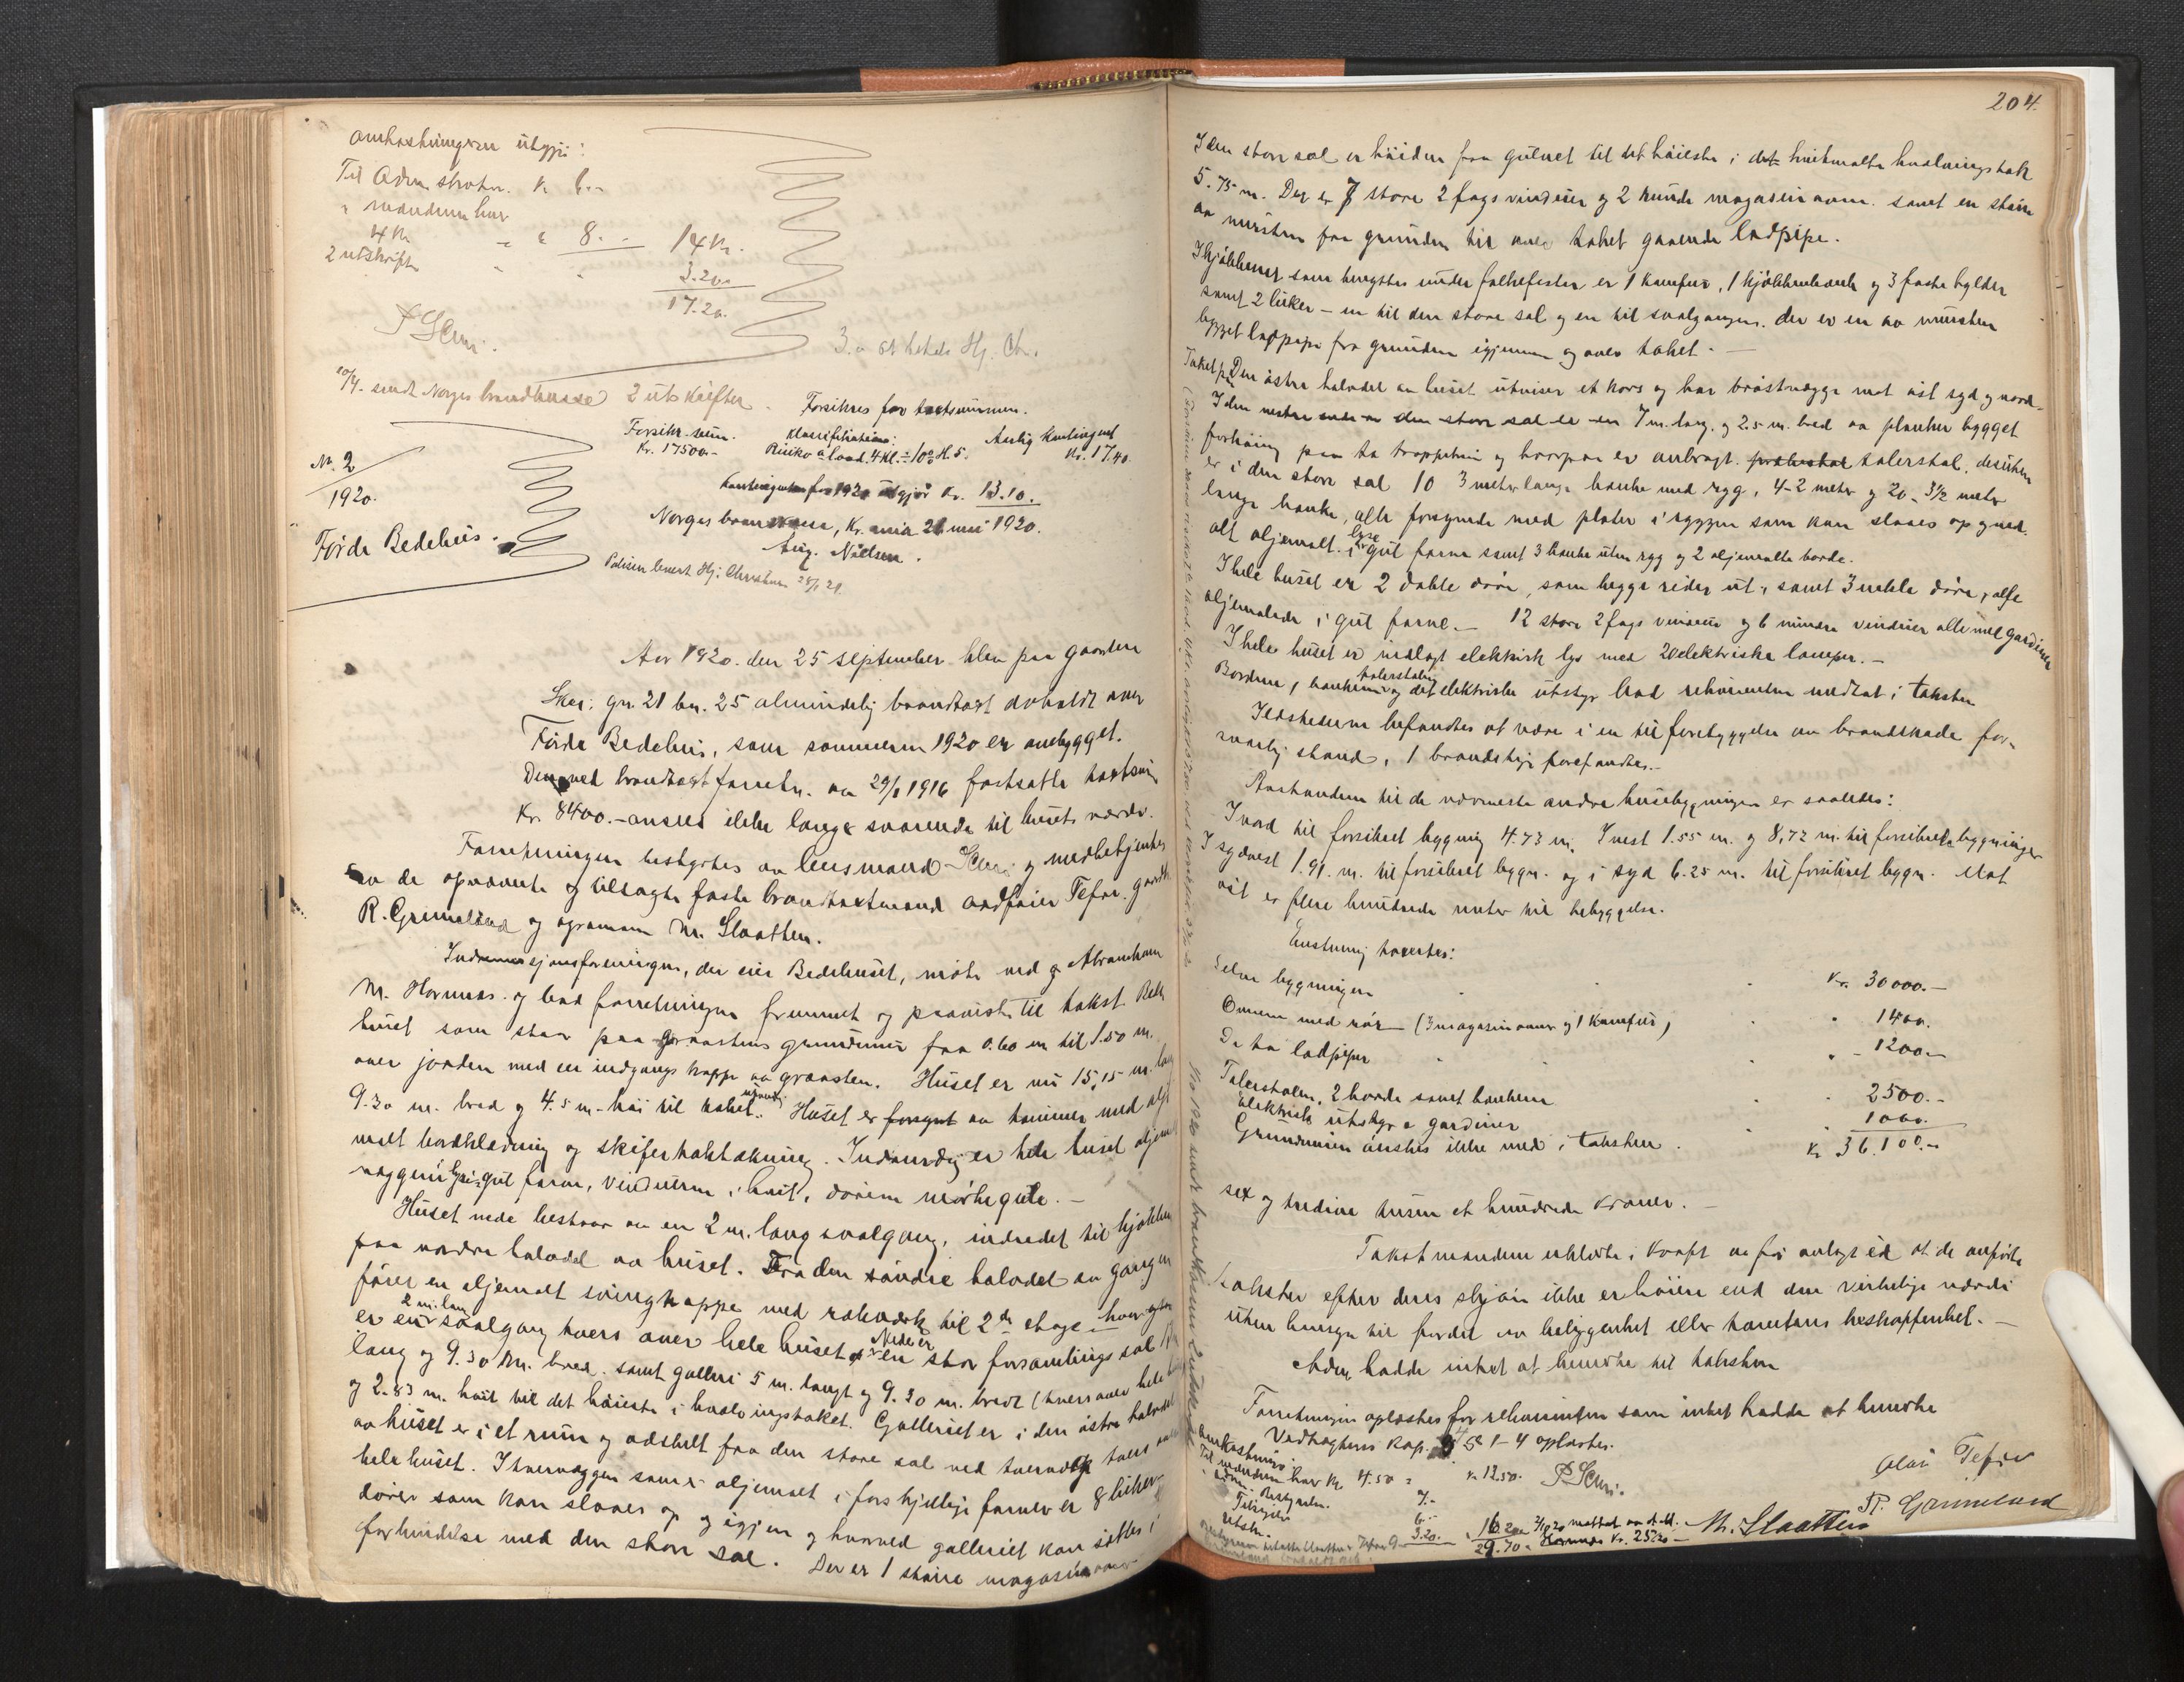 omkostningerne utgjør:
Til Adm. skotn. Kr. 6.-
" mændene hver
4 Kr. " " 8.- 14 Kr.
2 utskrifter " " 3.20
17.20
3.- at betale Hj. Chr.
10/4. sendt Norges brandkasse 2 utskrifter.
Forsikres for takstsummen.
Forsikr. sum. Klassifikation: Aarlig Kontingent
Kr. 17500.- Risiko a land. 4 Kl. ÷ 10% H. 5. Kr. 17.40
Kontingenten for 1920 utgjør Kr. 13.10.
Norges brandkasse, Kr.ania 21 mai 1920.
Aug. Nielsen.
Polisen levert Hj. Christensen
N. 2
1920.
Førde Bedehus.
Aar 1920. den 25 september blev paa gaarden
gn. 21 bn. 25 almindelig brandtakst avholdt over
Førde Bedehus, som sommeren 1920 er ombygget.
Den ved brandtakstforretn. av 29/ 1916 fastsatte takstsum
Kr. 8400.- ansees ikke længer svarende til husets værdi.
Forretningen bestyrtes av lensmand og medbetjentes
av de opnævnte og tilsagte faste brandtakstmænd Tefre, gaardbr.
R. Grimeland og agronom M. Slaatten.
Indremisjonsforeningen, der eier Bedehuset, møtte ved Abraham
M. Hovmas og bad forretningen fremmet og paaviste til takst Bede
huset som staar paa graastens grundmur fra 0.60 m til 1.50 m.
over jorden med en indgangs trappe av graasten. Huset er nu 15,15 m. lang
9.30 m. bred og 4.5 m. høi til taket utvendig. Huset er av tømmer med olje
malt bordklædning og skifertaktækning. Indvendig er hele huset oljemalt
væggene i lysegul farve, vinduerne i hvit, dørene mørkegule.-
Huset nede bestaar av en 2 m. lang svalgang, indredet til kjøkken
paa nordre halvdel av huset. Fra den søndre halvdel av gangen
fører en oljemalt svingtrappe med rekværk til 2den etage - hvor
er en 2 m. lang svalgang tvers over hele huset. Nede er en stor forsamlings sal
lang og 9.30 m. bred. samt galleri 5 m. langt og 9.30 m. bredt (tvers over hele
og 2.83 m. høit til det høieste i hvælvingstaket. Galleriet er i den østre halvdel
av huset er i et rum og adskilt fra den store sal ved tvervæg tvers over
hele huset. I tvervæggen som er oljemalt i forskjellige farver er 8 luker
dører som kan slaaes op og igjen og hvorved galleriet kan sættes i
forbindelse med den store sal. Der er 1 større magasinovn
204.
I den store sal er høiden fra gulvet til det høieste i det hvitmalte hvælvingstak
5.75 m. Der er 7 store 2 fags vinduer og 2 runde magasinovne. samt en større
av mursten fra grunden til over taket gaaende ladpipe.
I kjøkkenet som benyttes under folkefester er 1 komfur, 1 kjøkkenbænk og 3 faste hylder
samt 2 luker - en til den store sal og en til svalgangen. der er en av mursten
bygget ladpipe fra grunden igjennem og over taket.-
Taket paa Den østre halvdel av huset utviser et kors og har brøstvægge mot øst syd og nord.
I den vestre ende av den store sal er en 7 m. lang. og 2.5 m. bred av planker bygget
forhøining paa to trappetrin og hvorpaa er anbragt talerstol, desuten
er i den store sal 10 3 meter lange bænke med ryg, 4-2 meter og 20 - 3½ meter
lange bænke, alle forsynede med plater i ryggen som kan slaaes op og ned.
alt oljemalt i lyse gul farve samt 3 bænke uten ryg og 2 oljemalte borde.
I hele huset er 2 doble døre, som begge slaar ut, samt 3 enkle døre, alle
oljemalede i gul farve.- 12 store 2 fags vinduer og 6 mindre vinduer alle med gardiner
I hele huset er indlagt elektrisk lys med 20 elektriske lamper.-
Bordene, bænkene, talerstolen og det elektriske utstyr bad rekvirenten medtat i taksten
Ildstederne befandtes at være i en til forebyggelse av brandskade for-
svarlig stand, 1 brandstige forefandtes.-
Avstanden til de nærmeste andre husebygninger er saaledes:
I nord til forsikret bygning 4.73 m. I vest 1.55 m. og 8,72 m. til forsikrede bygninger
I sydvest 1.91 m. til forsikret bygn. og i syd 6.25 m. til forsikret bygn. Mot
øst er flere hundrede meter til bebyggelse.
Enstemmig taxertes:
Selve bygningen Kr. 30000.-
Ovnene med rør (3 magasinovne og 1 komfur) " 1400.
De to ladpiper " - 1200.-
Talerstolen, 2 borde samt bænkene " 2500.-
Elektrisk utstyr & gardiner " 1000.
Grundmuren ønskes ikke med i taksten. Kr 36.100.-
sex og tredive tusen et hundrede kroner.-
Takstmændene erklærte i kraft av før avlagt ed at de anførte
takster efter deres skjøn ikke er høiere end den virkelige værdi
uten hensyn til fordel av beliggenhet eller tomtens beskaffenhet.-
Adm. hadde intet at bemerke til taksten
Forretningen oplæstes for rekvirenten som intet hadde at bemerke
Vedtægternes Kap. 4 5 § 1-4 oplæstes.
Omkostning:
Til mændene hver Kr. 4.50 = Kr. 12.50.
adm. Bestyrelse. 7.-
Tilsigelse 6.-
utskr. 3.20. 16.20
29.70
Hovmas Kr. 25.20 -
Olai Tefre
R. Grimeland
M. Slaatten